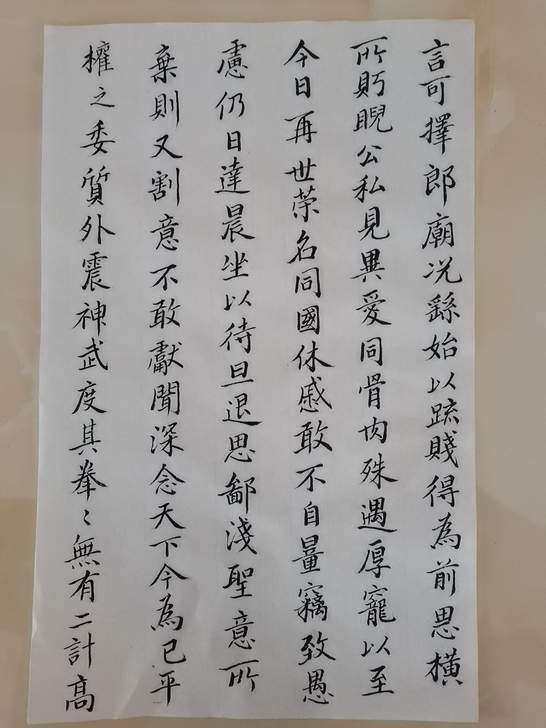 言可擇郎廟况繇始以疏賤得為前恩橫
所眄睨公私見異愛同骨肉殊遇厚寵以至
今日再世荣名同國休慼敢不自量竊致愚
慮仍日達晨坐以待旦退思鄙淺聖意所
棄則又割意不敢獻聞深念天下今為已平
權之委質外震神武度其拳〻無有二計高